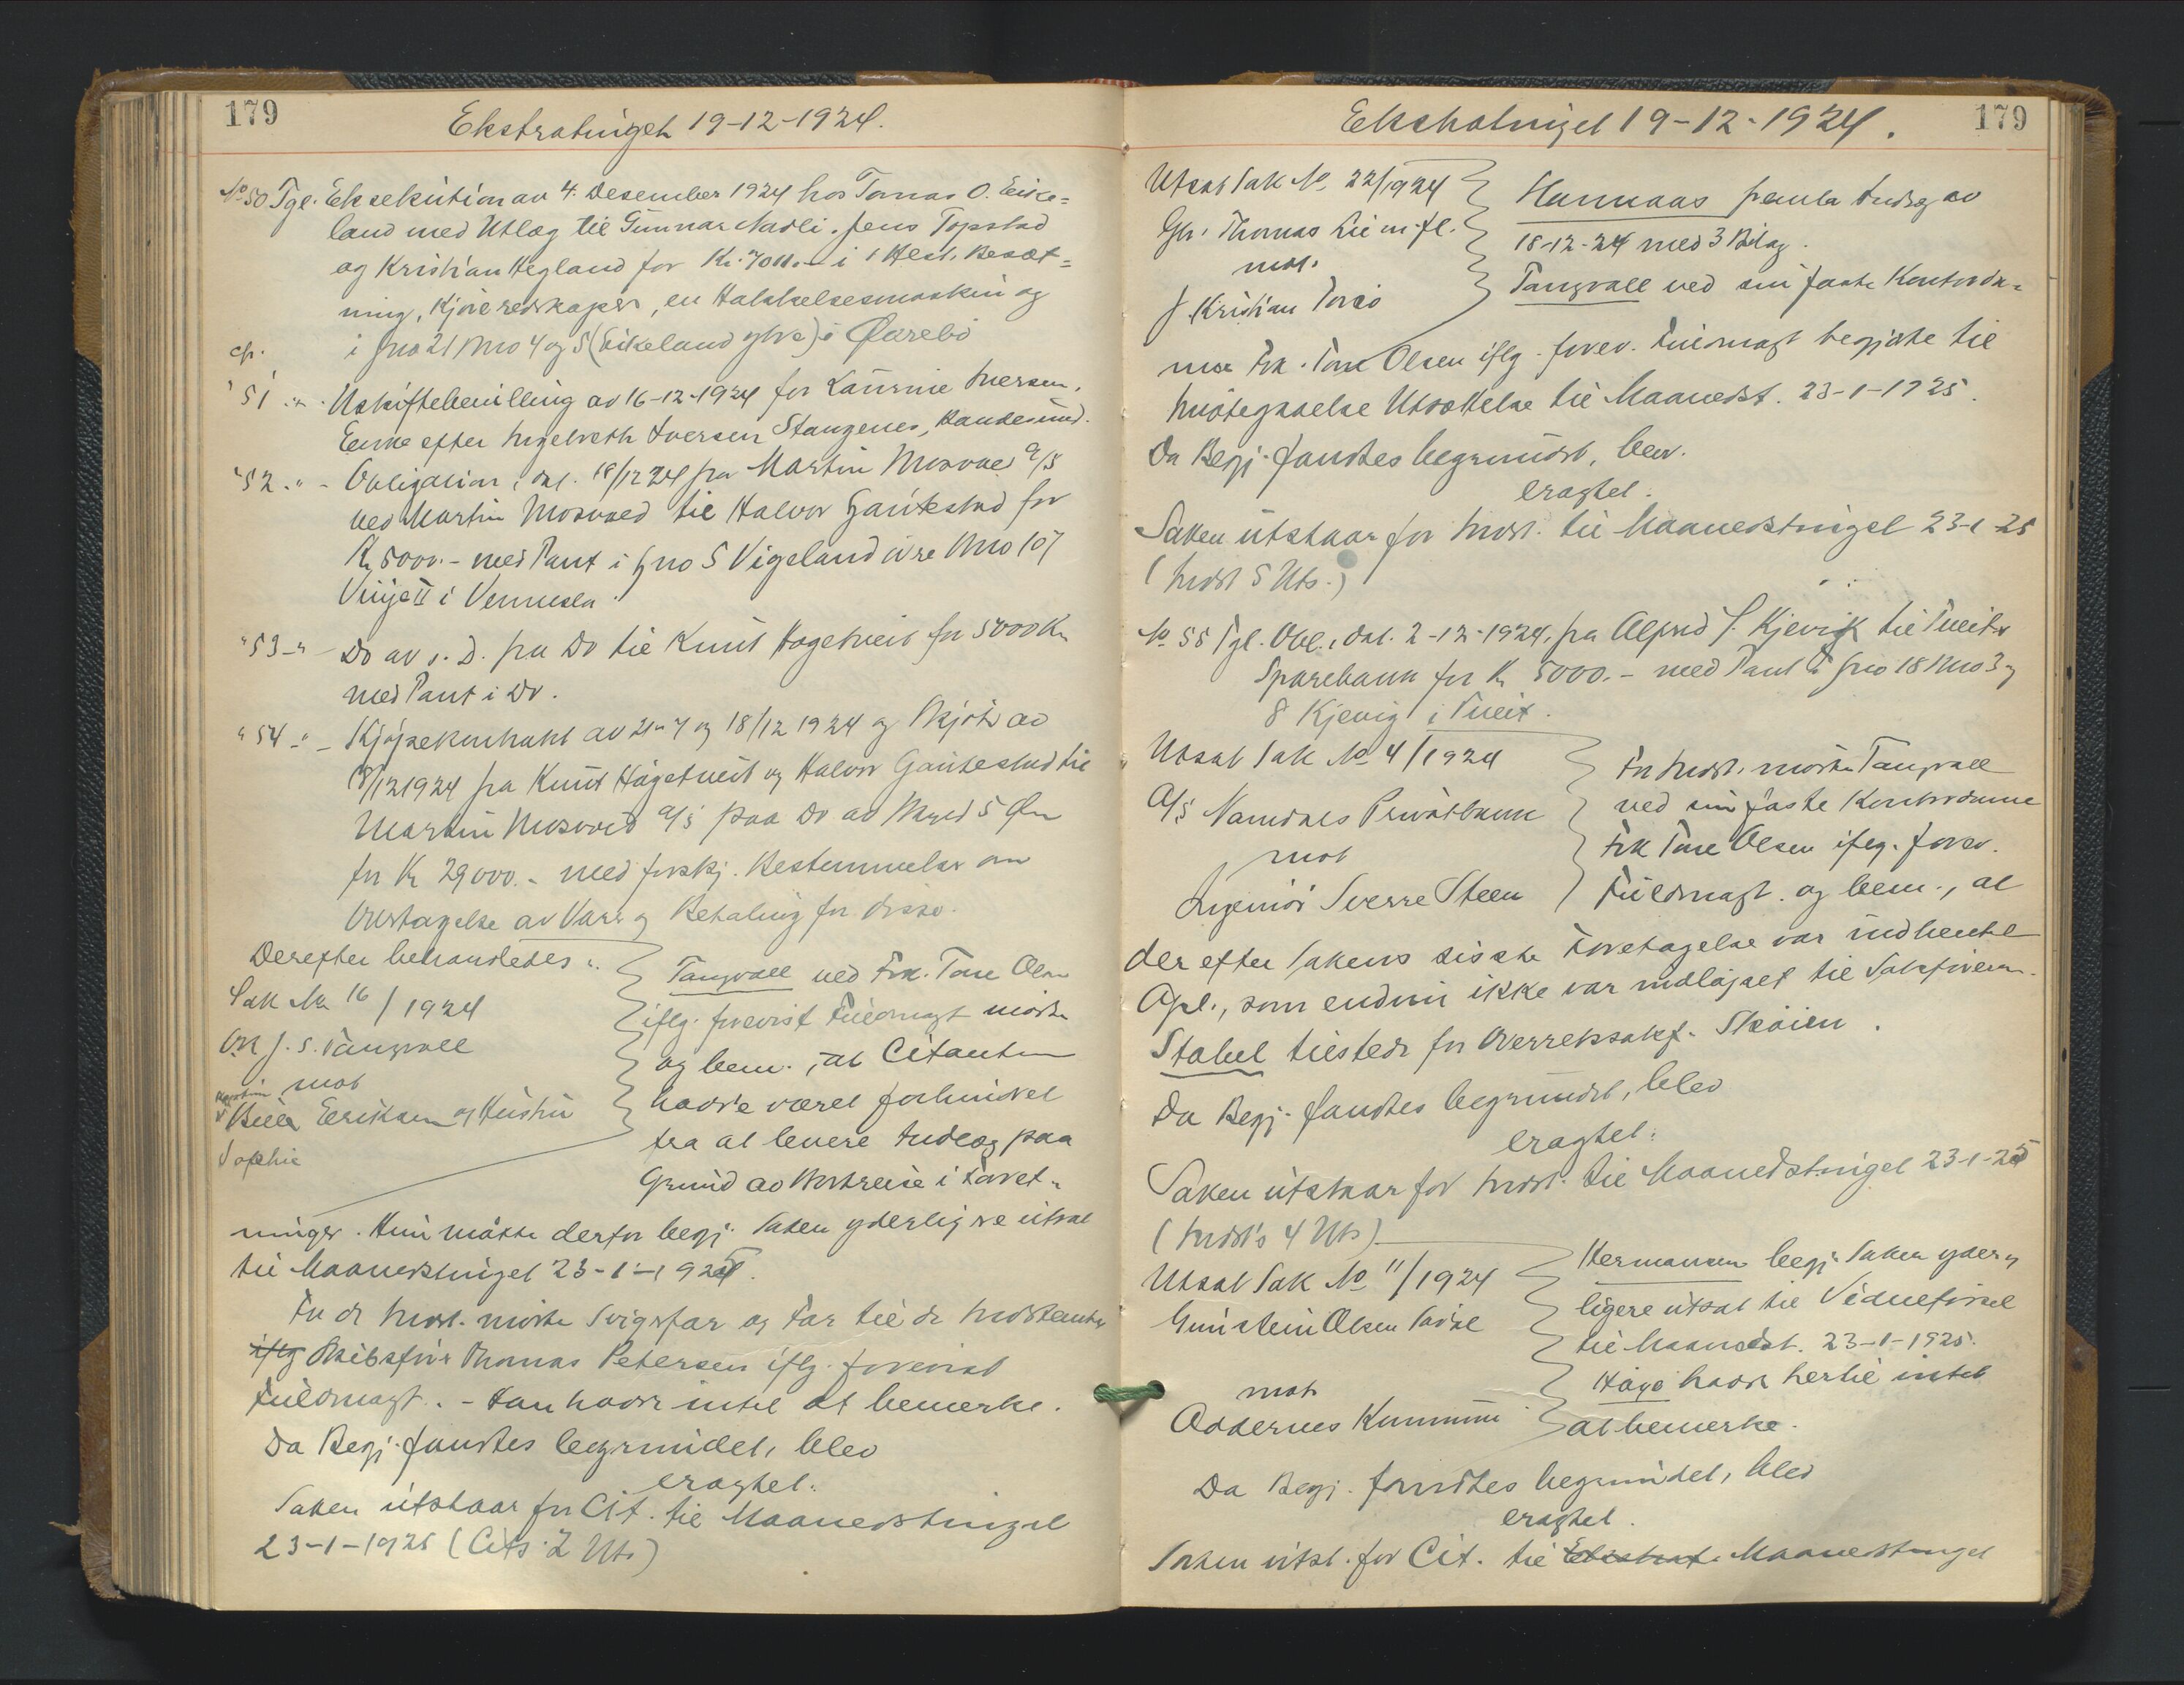 179
Ekstratinget 19-12-1924.
No 50 Tgl. Eksekution av 4. Desember 1924 hos Tomas O. Eike=
land med Utlæg til Gunnar Nadli. Jens Topstad
og Kristian Hegland for Kr. i 1 Hest, Besæt=
ning, Kjøreredskaper, en Hakkelsesmaskin og
i gno 21 bno 4 og 5 (Eikeland ytre) i Øvrebø
cfr.
" 51 " Uskiftebevilling av 16-12-1924 for Laurine Iversen.
Enke efter Ingebreth Iversen Stangenes, Randesund.
" 52. " - Obligation, dat. 18/12 24 fra Martin Mosvold A/S
ved Martin Mosvold til Halvor Gautestad for
Kr 5000.- med Pant i gno 5 Vigeland øvre bno 107
Vinje II i Vennesla.
" 53 - " Do av s. D. fra Do til Knut Hagetveit for 5000 Kr
med Pant i Do.
" 54 - " - Kjøpekontrakt av 21-7 og 18/12 1924 og Skjøte av
18/12 1924 fra Knut Hagetveit og Halvor Gautestad til
Martin Mosvold A/S paa Do av 5 Øre
for Kr 29000.- med forskj. Bestemmelser om
Overtagelse av Varer og Betaling for disse.
Derefter behandledes:
Sak No 16/1924
O.r. J. S. Tangvall
mot
Eeriksen og Hustru
Sophie
Tangvall ved Frk. Tone Olsen
iflg. forevist Fuldmagt møtte
og bem., at Citanten
hadde været forhindret
fra at levere Indlæg paa
Grund av Bortreise i Forret-
ninger. Hun maatte derfor begj. Saken yderligere utsat
til Maanedstinget 23-1-1925.
For de Indst. møtte Svigerfar og Far til de Indstevnte
iflg Skibsfører Thomas Petersen iflg. forevist
Fuldmagt. - Han hadde intet at bemerke.
Da Begj. fandtes begrundet, blev
eragtet:
Saken utstaar for Cit. til Maanedstinget
23-1-1925 (Cits 2 Uts)
179
Ekstratinget 19-12-1924.
Utsat Sak No 22/1924
Thomas Lie m. fl.
mot.
J. Kristian
Hannaas fremla Indlæg av
18-12-24 med 3 Bilag.
Tangvall ved sin faste Kontorda-
me Frk. Tone Olsen iflg. forev. Fuldmagt begjærte til
Imøtegaaelse Utsættelse til Maanedst. 23-1-1925.
Da Begj. fandtes begrundet, blev.
eragtet:
Saken utstaar for Indst. til Maanedstinget 23-1-25
(Indst 5 Uts.)
No 55 Tgl. Obl., dat. 2-12-1924, fra Alfred J. Kjevik til Tveit
Sparebank for Kr 5000.- med Pant i gno 18 bno 3 og
8 Kjevig i Tveit.
Utsat Sak No 4/1924
A/S Namdals Privatbank
mot
Ingeniør Sverre Steen
For Indst. møtte Tangvall
ved sin faste Kontordame
Frk Tone Olsen iflg. forev.
Fuldmagt. og bem., at
der efter Sakens sidste Foretagelse var indhentet
Opl., som endnu ikke var indløpet til Sakføreren.
Stabel tilstede for Overretssakf. Skøien.
Da Begj. fandtes begrundet, blev
eragtet:
Saken utstaar for Indst. til Maanedstinget 23-1-25
(Indst's 4 Uts)
Utsat Sak No 11/1924
Gunstein Olsen
mot
Oddernes Kommune
Hermansen begj. Saken yder-
ligere utsat til Vidneførsel
til Maanedst. 23-1-1925.
Høye hadde hertil intet
at bemerke.
Da Begj. fandtes begrundet, blev
eragtet.
Saken utst. for Cit. til Ekstrat. Maanedstinget